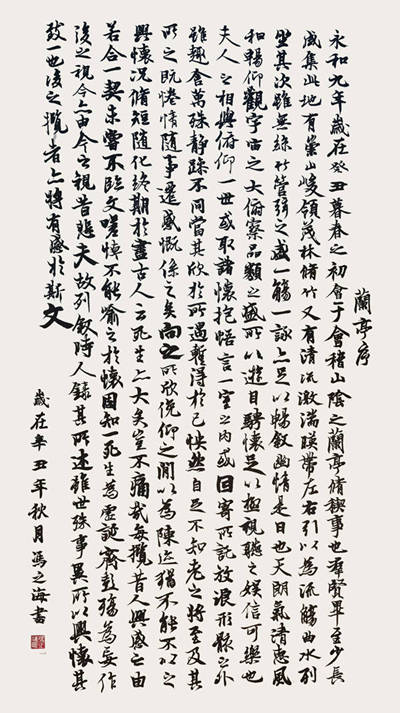 蘭亭序
永和九年歲在癸丑暮春之初會于會稽山陰之蘭亭脩禊事也羣賢畢至少長
咸集此地有崇山峻領茂林脩竹又有清流激湍暎帶左右引以為流觴曲水列
坐其次雖無絲竹管弦之盛一觴一詠亦足以暢叙幽情是日也天朗氣清惠風
和暢仰觀宇宙之大俯察品類之盛所以遊目騁懷足以極視聽之娛信可樂也
夫人之相與俯仰一世或取諸懷抱悟言一室之內或因寄所託放浪形骸之外
雖趣舍萬殊靜躁不同當其欣於所遇暫得於己怏然自足不知老之將至及其
所之既惓情隨事遷感慨係之矣向之所欣俛仰之閒以為陳迹猶不能不以之
興懷況脩短隨化終期於盡古人云死生亦大矣豈不痛哉每攬昔人興感之由
若合一契未嘗不臨文嗟悼不能喻之於懷固知一死生為虛誕齊彭殤為妄作
後之視今亦由今之視昔悲夫故列叙時人錄其所述雖世殊事異所以興懷其
致一也後之攬者亦將有感於斯文
歲在辛丑年秋月馮之海書